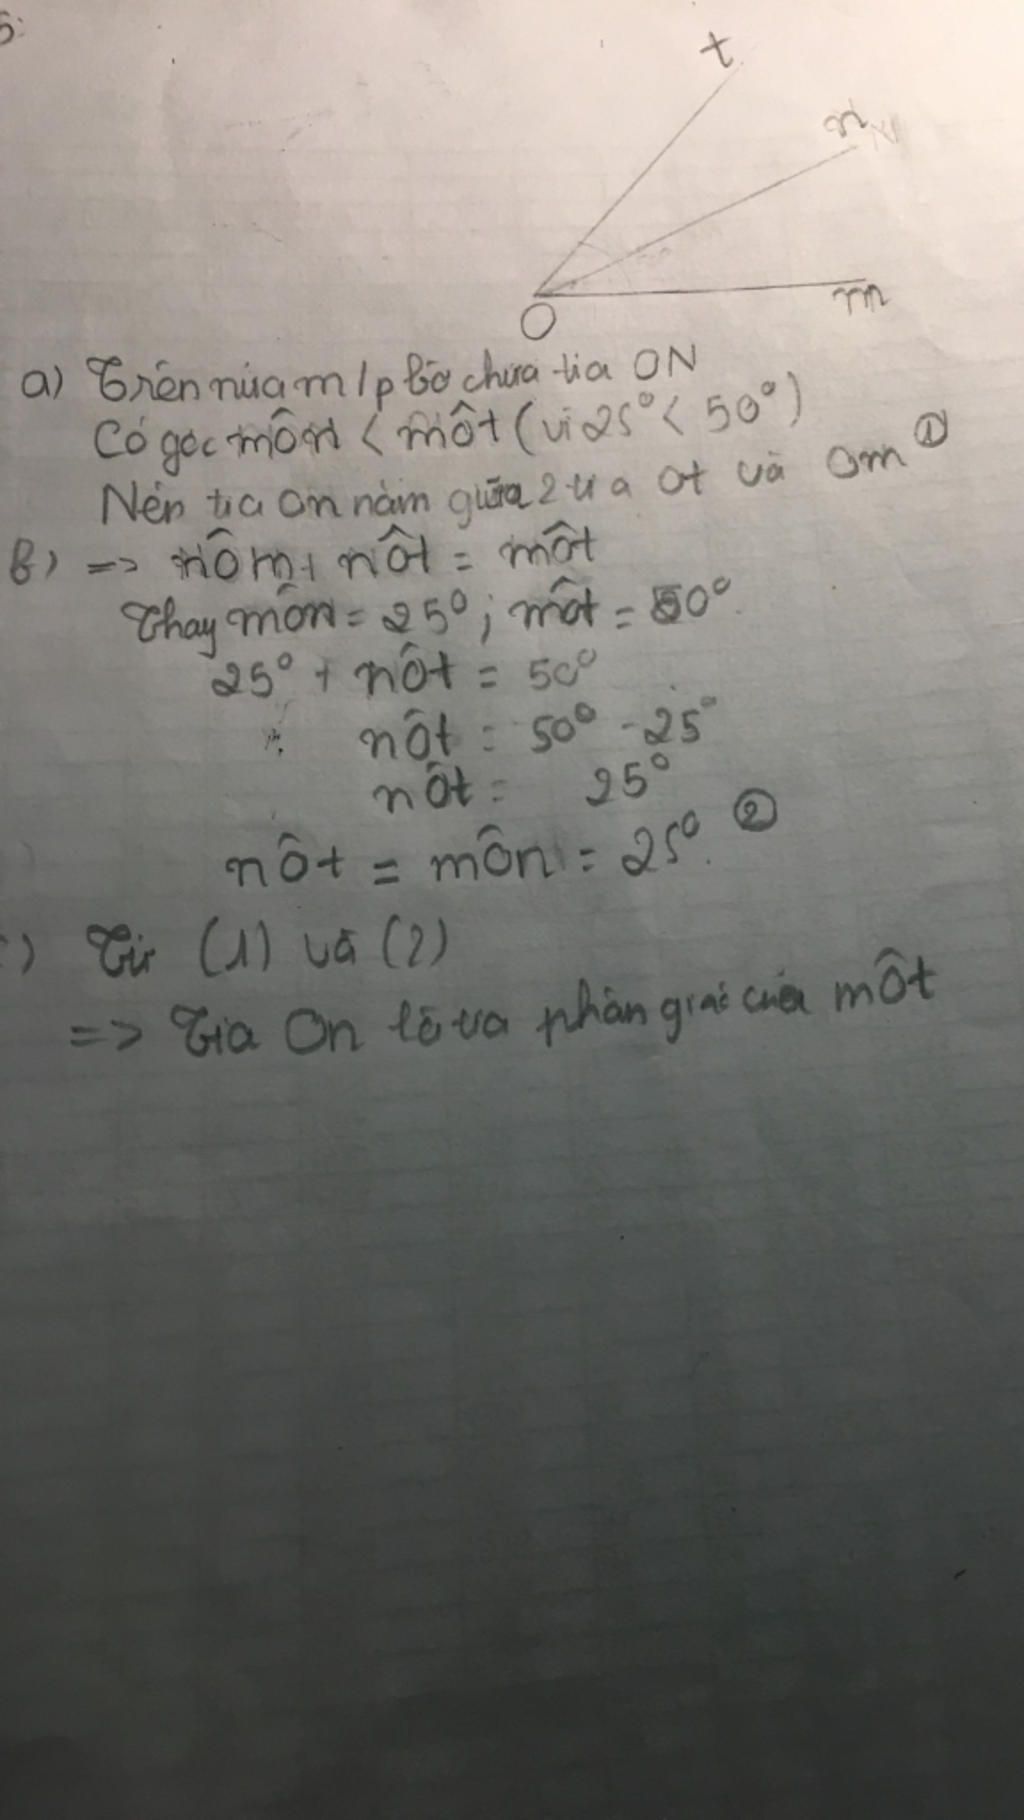 5:
t
n
m
O
a) Trên nửa m/p bờ chứa tia ON
Có góc môn < môt (vì 25° < 50°)
Nên tia On nằm giữa 2 tia Ot và Om ①
b) => nôm + nôt = môt
Thay môn = 25°; môt = 50°.
25° + nôt = 50°
nôt = 50° - 25°
nôt = 25°
nôt = môn = 25°. ②
) Từ (1) và (2)
=> Tia On là tia phân giác của môt